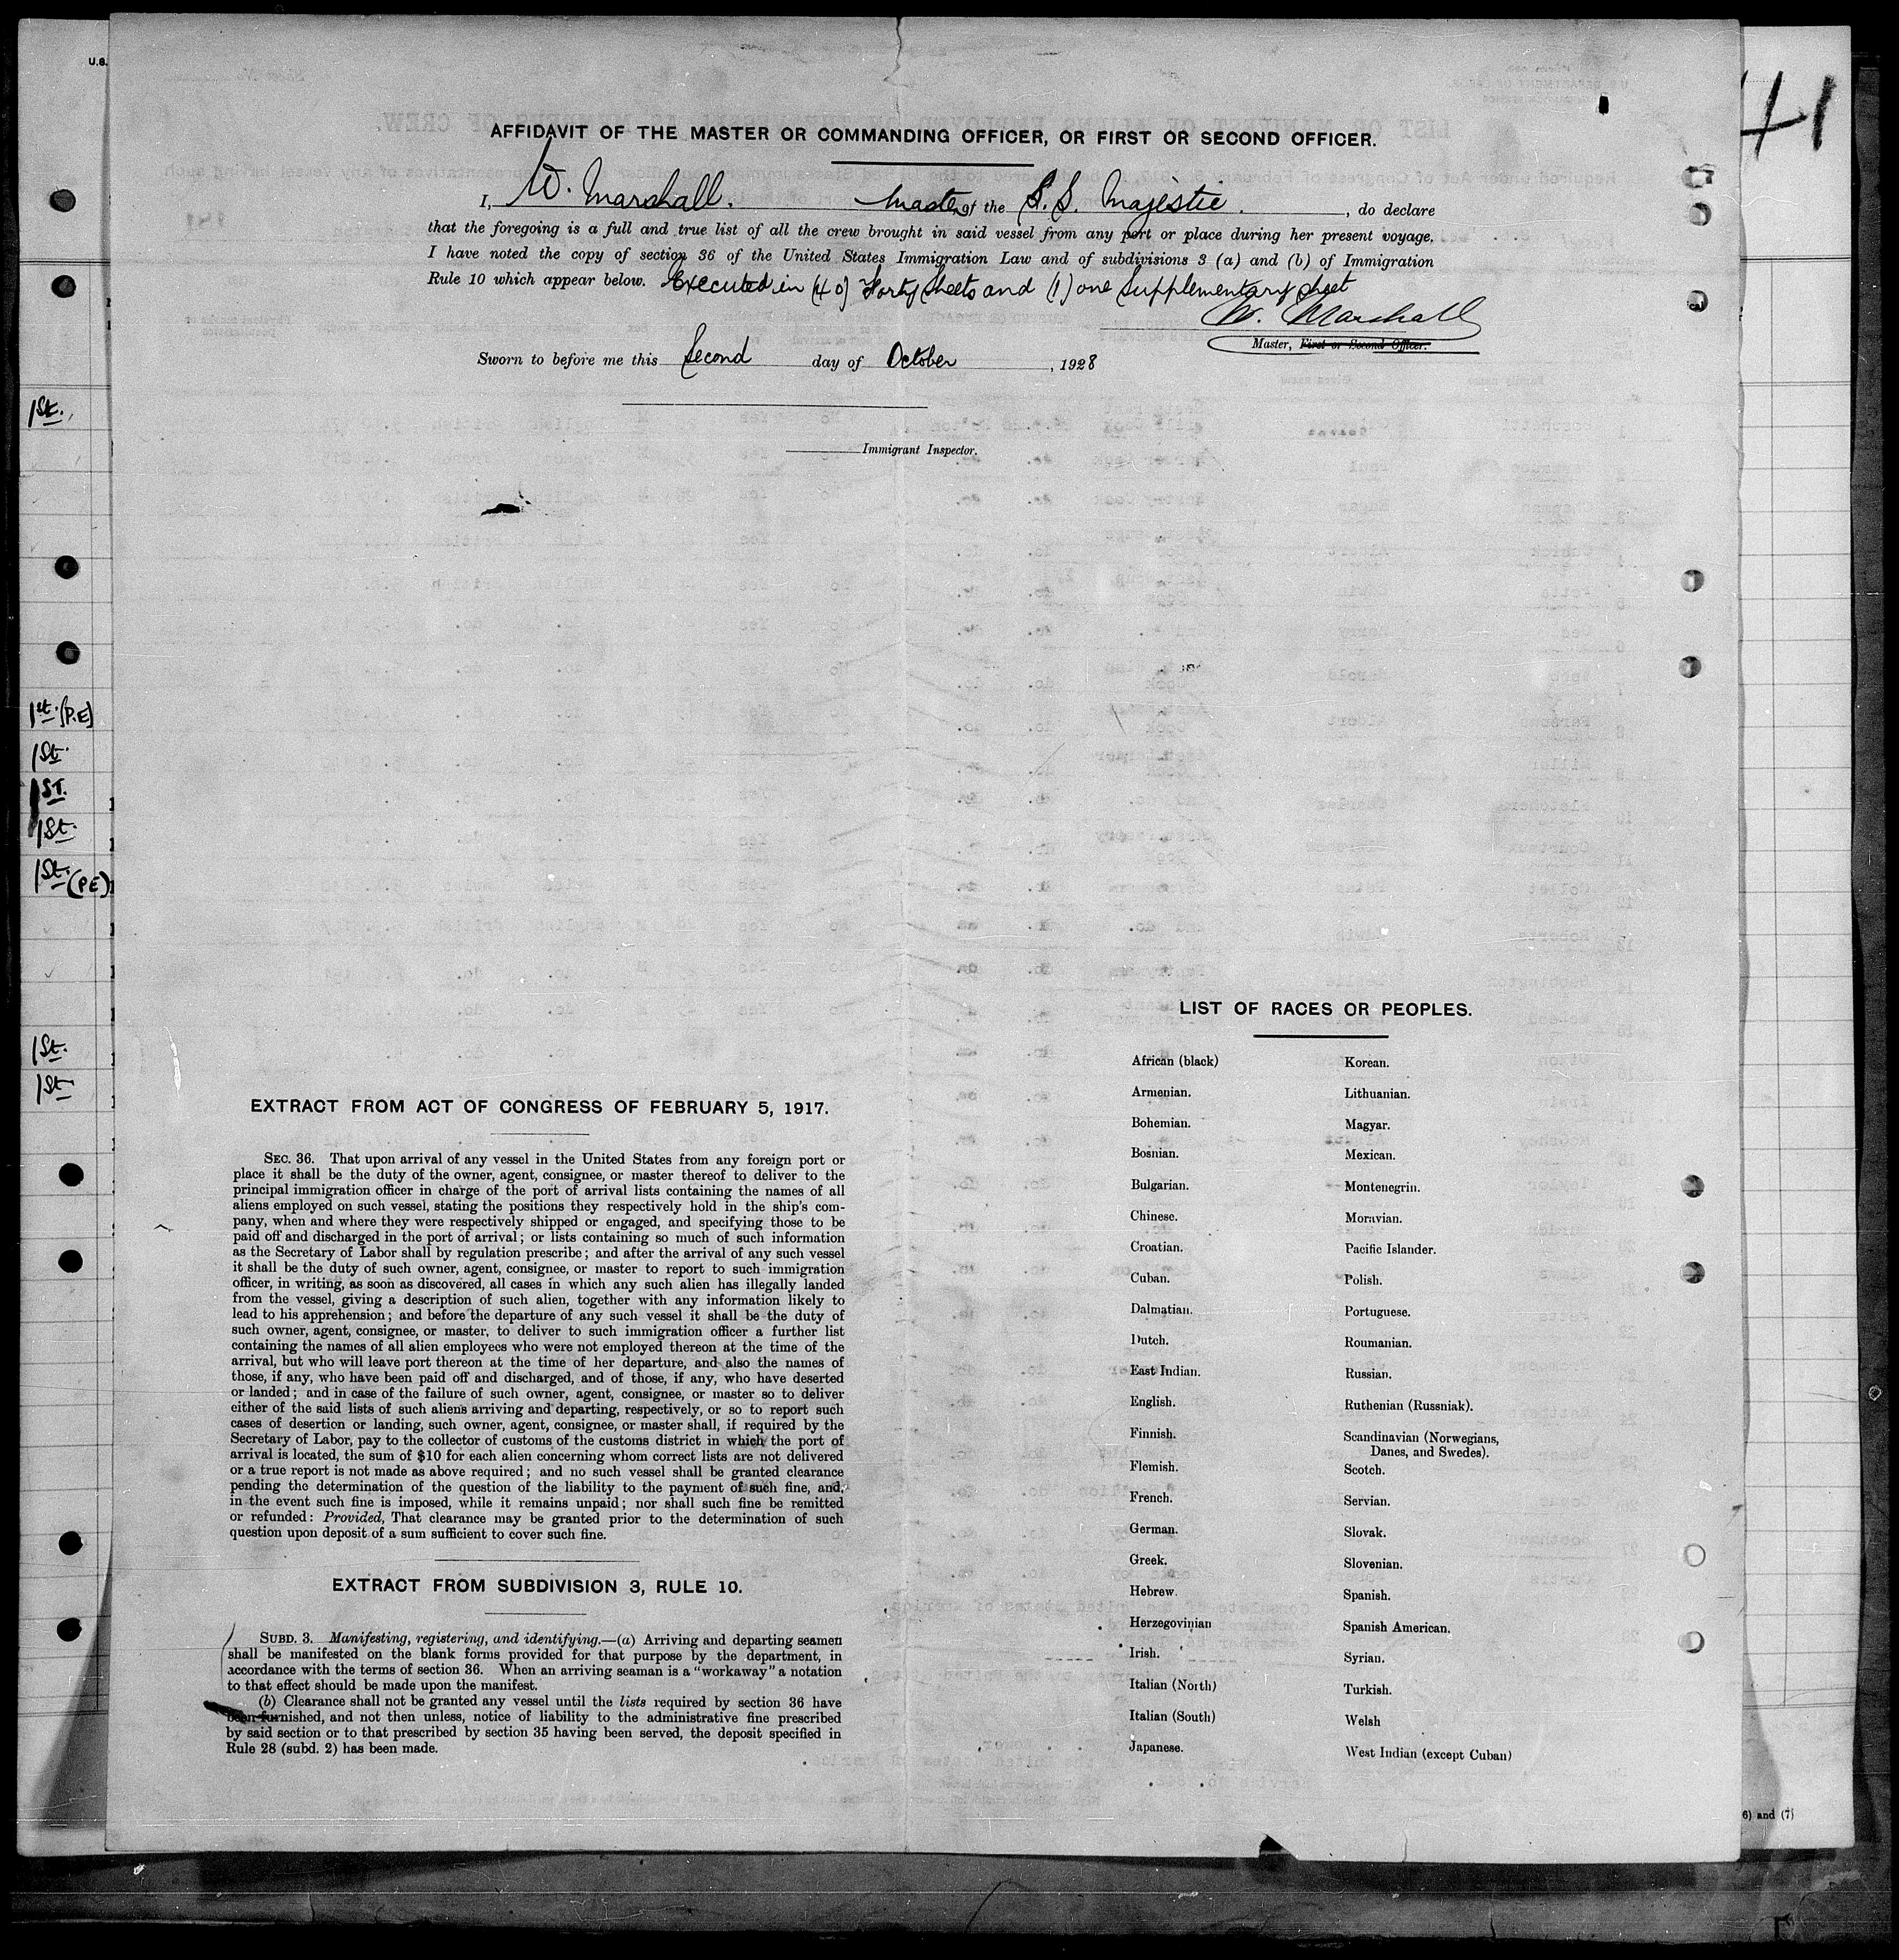 U.S.
41
AFFIDAVIT OF THE MASTER OR COMMANDING OFFICER, OR FIRST OR SECOND OFFICER.
I, W. Marshall. Master of the S.S. Majestic. , do declare
that the foregoing is a full and true list of all the crew brought in said vessel from any port or place during her present voyage.
I have noted the copy of section 36 of the United States Immigration Law and of subdivisions 3 (a) and (b) of Immigration
Rule 10 which appear below. Executed in (40) Forty sheets and (1) one Supplementary sheet
W. Marshall
Master, First or Second Officer.
Sworn to before me this Second day of October , 1928
Immigrant Inspector.
1St.
1st. [P.E]
1St.
1ST.
1St.
1St. (PE)
1St.
1St
EXTRACT FROM ACT OF CONGRESS OF FEBRUARY 5, 1917.
SEC. 36. That upon arrival of any vessel in the United States from any foreign port or
place it shall be the duty of the owner, agent, consignee, or master thereof to deliver to the
principal immigration officer in charge of the port of arrival lists containing the names of all
aliens employed on such vessel, stating the positions they respectively hold in the ship's com-
pany, when and where they were respectively shipped or engaged, and specifying those to be
paid off and discharged in the port of arrival; or lists containing so much of such information
as the Secretary of Labor shall by regulation prescribe; and after the arrival of any such vessel
it shall be the duty of such owner, agent, consignee, or master to report to such immigration
officer, in writing, as soon as discovered, all cases in which any such alien has illegally landed
from the vessel, giving a description of such alien, together with any information likely to
lead to his apprehension; and before the departure of any such vessel it shall be the duty of
such owner, agent, consignee, or master, to deliver to such immigration officer a further list
containing the names of all alien employees who were not employed thereon at the time of the
arrival, but who will leave port thereon at the time of her departure, and also the names of
those, if any, who have been paid off and discharged, and of those, if any, who have deserted
or landed; and in case of the failure of such owner, agent, consignee, or master so to deliver
either of the said lists of such aliens arriving and departing, respectively, or so to report such
cases of desertion or landing, such owner, agent, consignee, or master shall, if required by the
Secretary of Labor, pay to the collector of customs of the customs district in which the port of
arrival is located, the sum of $10 for each alien concerning whom correct lists are not delivered
or a true report is not made as above required; and no such vessel shall be granted clearance
pending the determination of the question of the liability to the payment of such fine, and,
in the event such fine is imposed, while it remains unpaid; nor shall such fine be remitted
or refunded: Provided, That clearance may be granted prior to the determination of such
question upon deposit of a sum sufficient to cover such fine.
EXTRACT FROM SUBDIVISION 3, RULE 10.
SUBD. 3. Manifesting, registering, and identifying.—(a) Arriving and departing seamen
shall be manifested on the blank forms provided for that purpose by the department, in
accordance with the terms of section 36. When an arriving seaman is a "workaway" a notation
to that effect should be made upon the manifest.
(b) Clearance shall not be granted any vessel until the lists required by section 36 have
been furnished, and not then unless, notice of liability to the administrative fine prescribed
by said section or to that prescribed by section 35 having been served, the deposit specified in
Rule 28 (subd. 2) has been made.
LIST OF RACES OR PEOPLES.
African (black)
Armenian.
Bohemian.
Bosnian.
Bulgarian.
Chinese.
Croatian.
Cuban.
Dalmatian.
Dutch.
East Indian.
English.
Finnish.
Flemish.
French.
German.
Greek.
Hebrew.
Herzegovinian
Irish.
Italian (North)
Italian (South)
Japanese.
Korean.
Lithuanian.
Magyar.
Mexican.
Montenegrin.
Moravian.
Pacific Islander.
Polish.
Portuguese.
Roumanian.
Russian.
Ruthenian (Russniak).
Scandinavian (Norwegians,
Danes, and Swedes).
Scotch.
Servian.
Slovak.
Slovenian.
Spanish.
Spanish American.
Syrian.
Turkish.
Welsh
West Indian (except Cuban)
6) and (7)